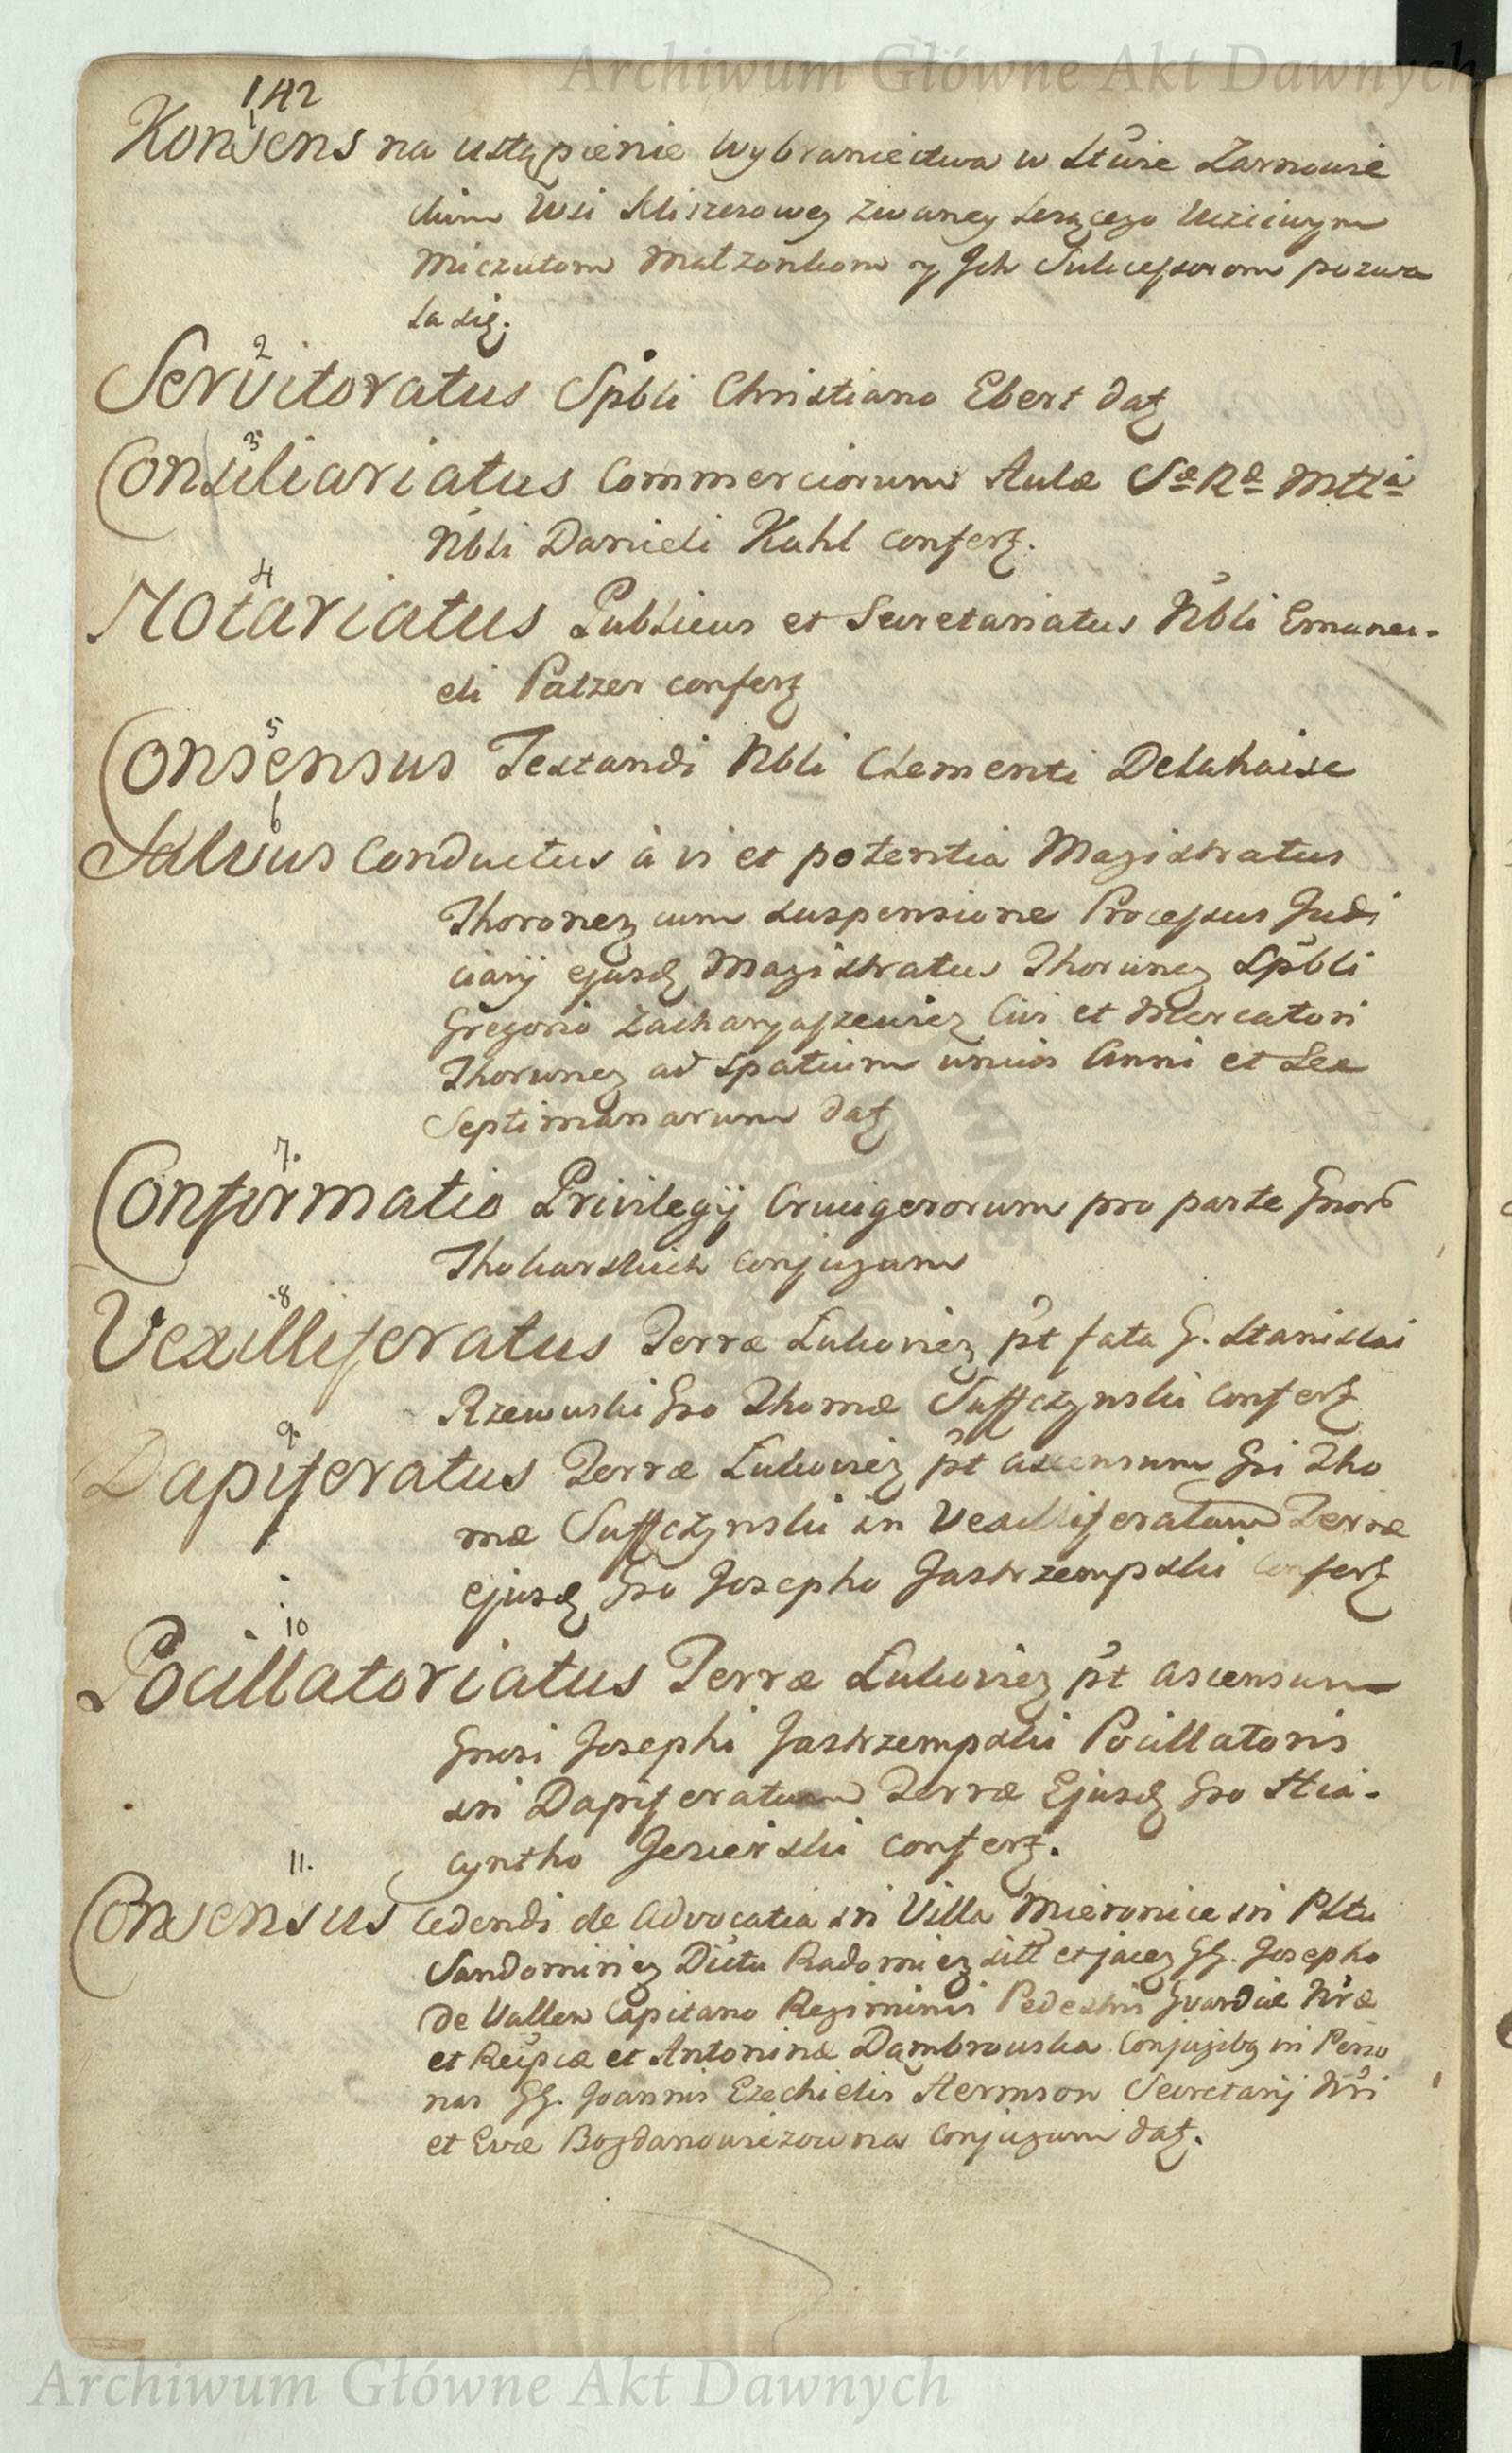 Archiwum Główne Akt Dawnych
142
1
Konsens na ustąpienie Wybraniectwa w Stwie Zarnowie
ckim Wsi Kliszerowey zwaney Leżącego Uczciwym
Miczutom Małzonkom y Jch Sukcessorom pozwa
la się.
2
Servitoratus Spbli Christiano Ebert datz
3
Consiliariatus Commerciorum Aulæ Sæ Ræ Mttis
Nbli Danieli Kahl confertz.
4
Notariatus Publicus et Secretariatus Nbli Emanu-
eli Patzer confertz
5
Consensus Testandi Nbli Clementi Delahaise
6
Salvus Conductus à vi et potentia Magistratus
Thoronez cum suspensione Processus Judi
ciarij ejusdz Magistratus Thorunez Spbli
Gregorio Zacharyaszewicz Civi et Mercatori
Thorunez ad spatium unius Anni et Sex
Septimanarum datz
7.
Confirmatio Privilegij Crucigerorum pro parte Gnord
Thokarskich conjugum
8
Vexilliferatus Terræ Lukoviez pt fata G. Stanislai
Rzewuski Gso Thomæ Suffczynski confertz
9.
Dapiferatus Terræ Lukoviez pt ascensum Gsi Tho
mæ Suffczynski in Vexilliferatum Terræ
ejusdz Gso Josepho Jastrzempski confertz
10
Pocillatoriatus Terræ Lukoviez pt ascensum
Gnosi Josephi Jastrzempski Pocillatoris
in Dapiferatum Terræ Ejusdz Gso Hia-
cyntho Jezierski confertz.
11.
Consensus cedendi de Advocatia in Villa Mieronice in Pltu
Sandomiriez Dictu Radomiez sitt et jacez GG. Josepho
de Vallen Capitano Regiminis Pedestris Gvardiæ Nræ
et Reipcæ et Antoninæ Dąmbrowska Conjugibz in Perso
nas GG. Joannis Ezechielis Hermson Secretarij Nri
et Evæ Bogdanowiczowna conjugum datz.
Archiwum Główne Akt Dawnych